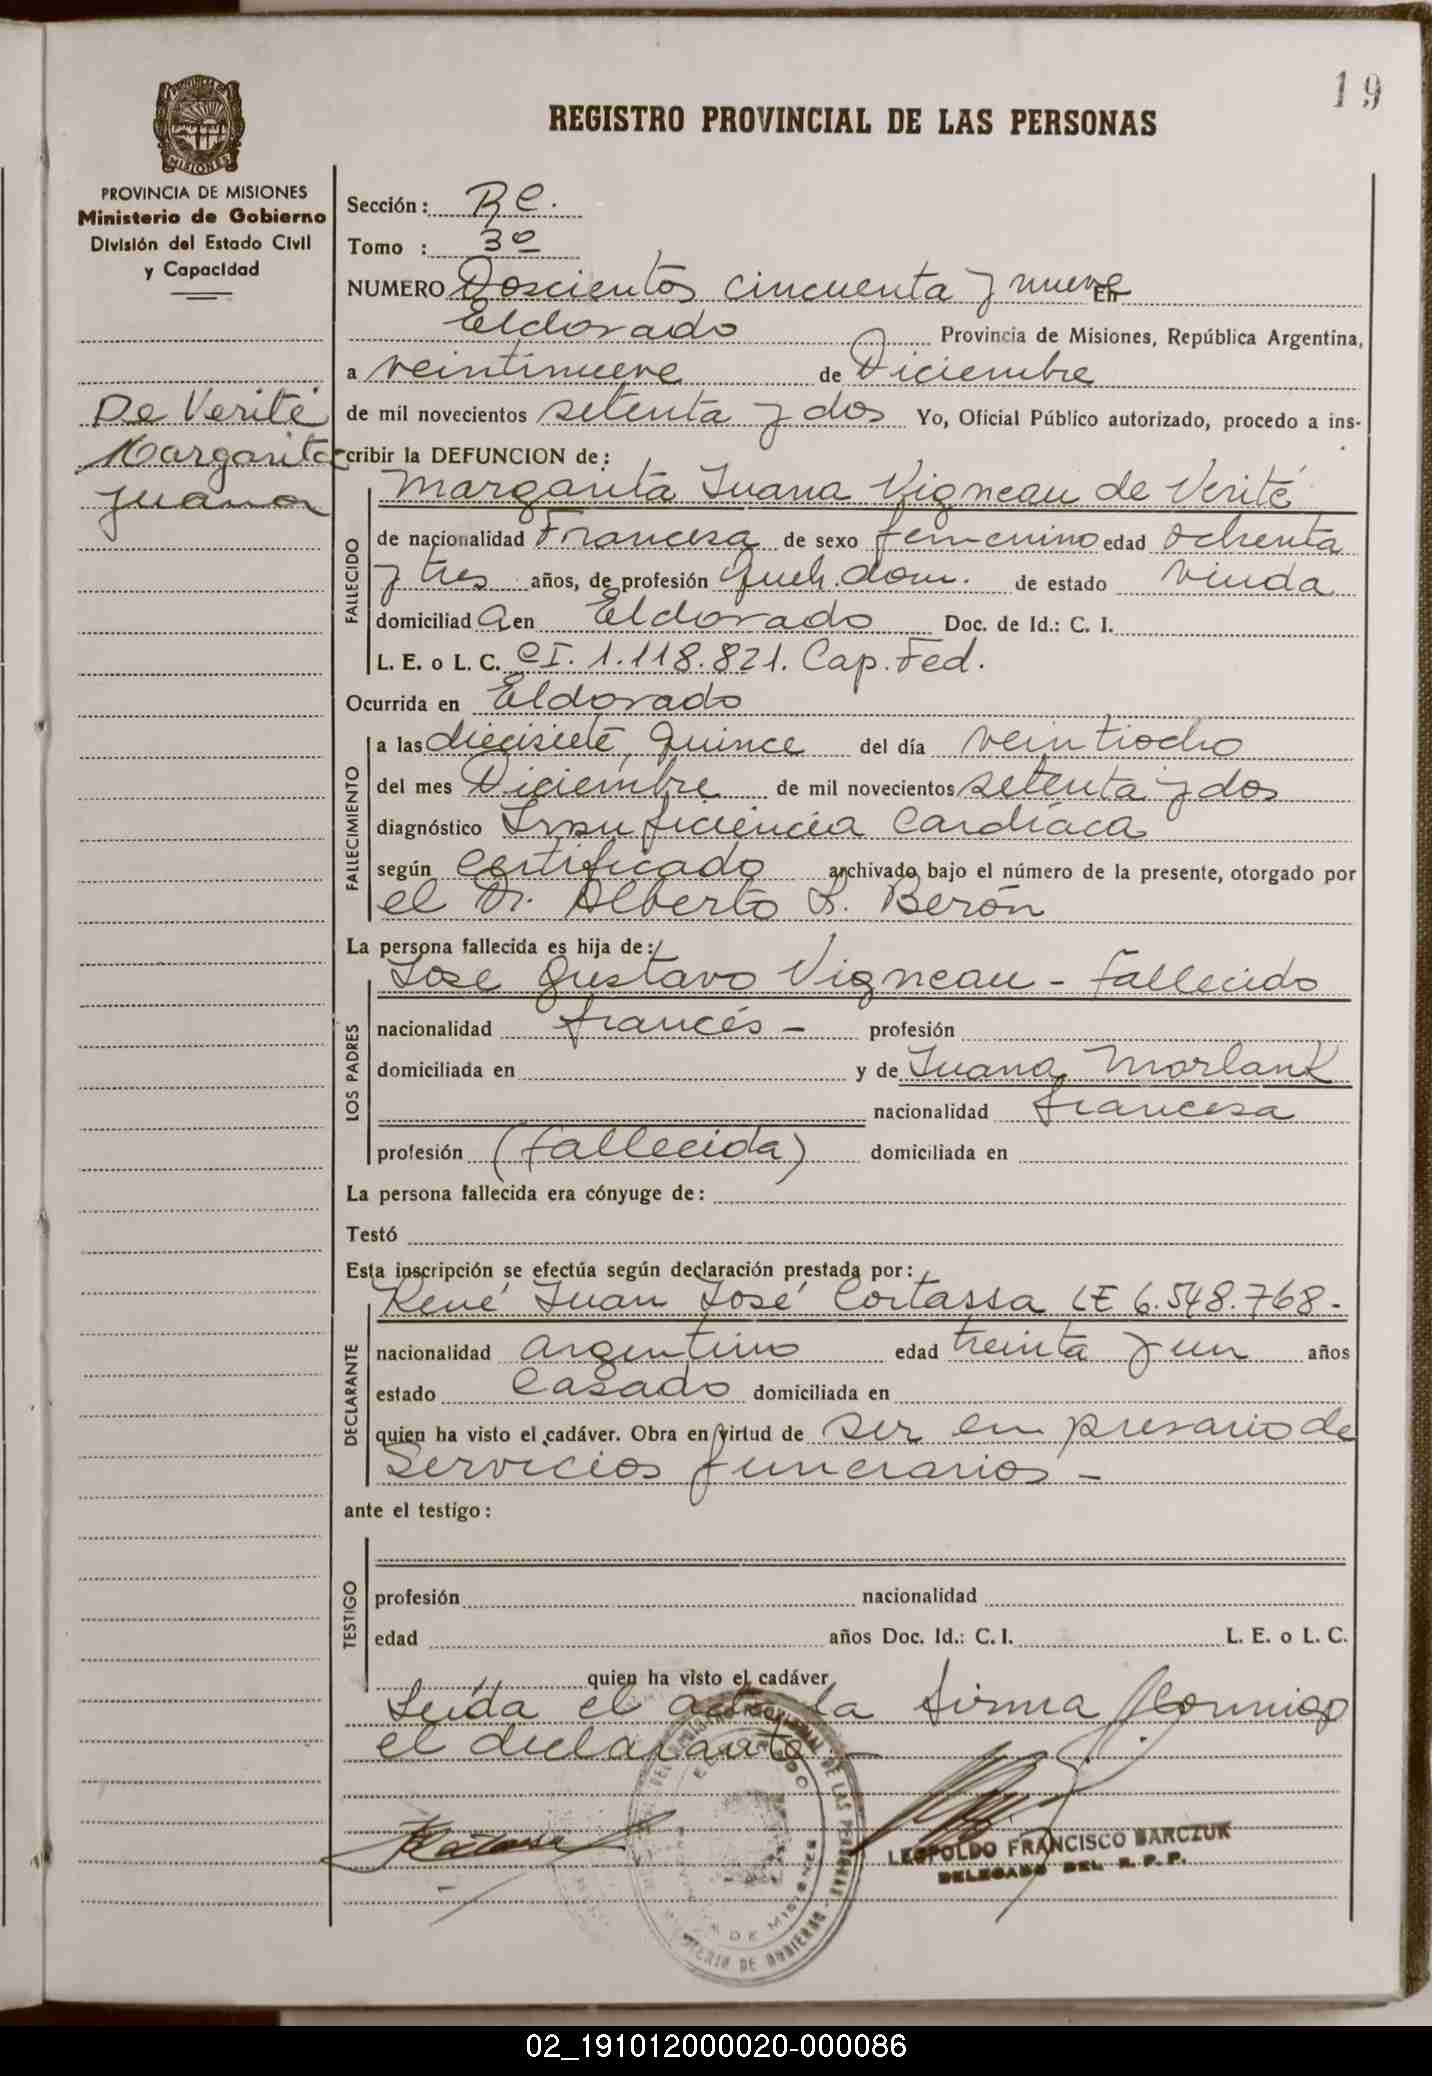 19
REGISTRO PROVINCIAL DE LAS PERSONAS
PROVINCIA DE MISIONES
Ministerio de Gobierno
División del Estado Civil
y Capacidad
De Verité
Margarita
Juana
Sección: RC.
Tomo : 3º
NUMERO Doscientos cincuenta y nueve En
Eldorado Provincia de Misiones, República Argentina,
a veintinueve de Diciembre
de mil novecientos setenta y dos Yo, Oficial Público autorizado, procedo a ins-
cribir la DEFUNCION de:
FALLECIDO
Margarita Juana Vigneau de Verité
de nacionalidad Francesa de sexo femenino edad ochenta
y tres años, de profesión Queh. dom. de estado viuda
domiciliad a en Eldorado Doc. de Id.: C. I.
L. E. o L. C. CI. 1.118.821. Cap. Fed.
Ocurrida en Eldorado
FALLECIMIENTO
a las diecisiete, quince del día veintiocho
del mes Diciembre de mil novecientos setenta y dos
diagnóstico Insuficiencia Cardíaca
según Certificado archivado bajo el número de la presente, otorgado por
el Dr. Alberto R. Berón
La persona fallecida es hija de:
LOS PADRES
José Gustavo Vigneau - fallecido
nacionalidad francés - profesión
domiciliada en y de Juana Morlank
nacionalidad francesa
profesión (fallecida) domiciliada en
La persona fallecida era cónyuge de:
Testó
Esta inscripción se efectúa según declaración prestada por:
DECLARANTE
René Juan José Cortassa LE 6.548.768-
nacionalidad argentino edad treinta y un años
estado Casado domiciliada en
quien ha visto el cadáver. Obra en virtud de ser empresario de
Servicios funerarios -
ante el testigo:
TESTIGO
profesión nacionalidad
edad años Doc. Id.: C. I. L. E. o L. C.
quien ha visto el cadáver
Leída el acta la firma conmigo
el declarante -
LEOPOLDO FRANCISCO BARCZUK
DELEGADO DEL R. P. P.
02_191012000020-000086